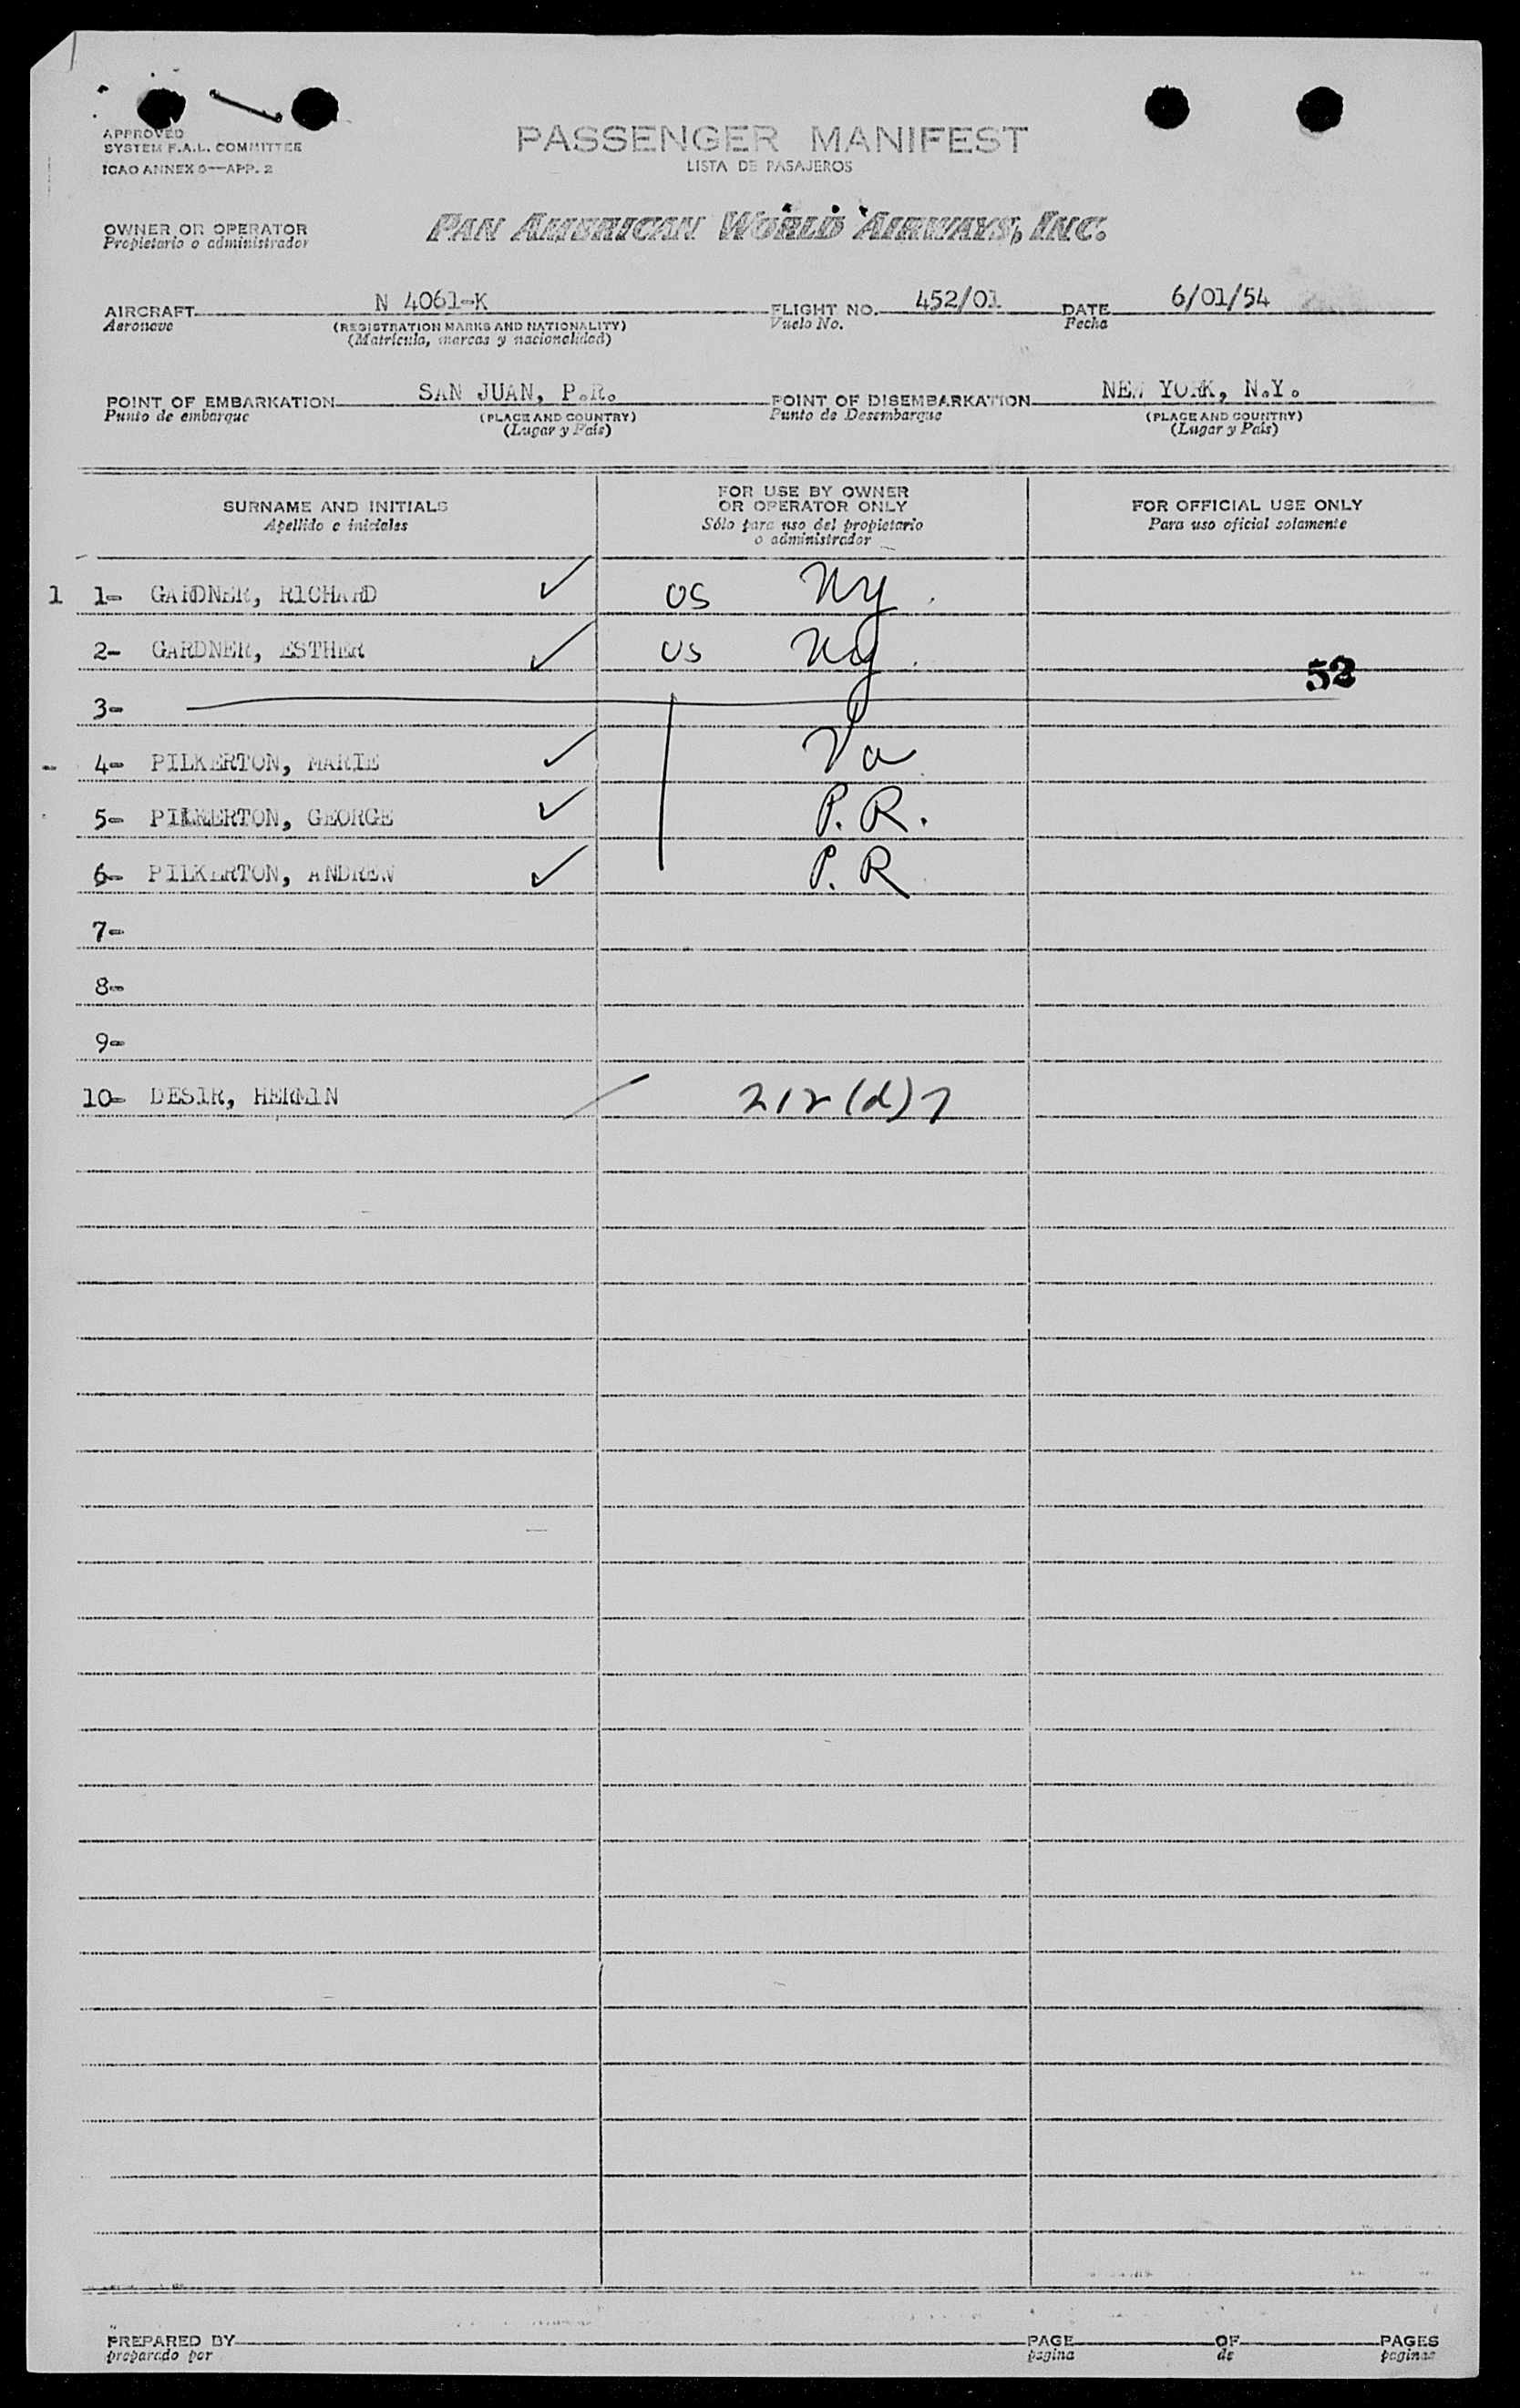 APPROVED
SYSTEM F.A.L. COMMITTEE
ICAO ANNEX 9—APP. 2
PASSENGER MANIFEST
LISTA DE PASAJEROS
OWNER OR OPERATOR
Propietario o administrador
PAN AMERICAN WORLD AIRWAYS, INC.
AIRCRAFT N 4061-K FLIGHT NO. 452/01 DATE 6/01/54
Aeronave (REGISTRATION MARKS AND NATIONALITY) Vuelo No. Fecha
(Matrícula, marcas y nacionalidad)
POINT OF EMBARKATION SAN JUAN, P.R. POINT OF DISEMBARKATION NEW YORK, N.Y.
Punto de embarque (PLACE AND COUNTRY) Punto de Desembarque (PLACE AND COUNTRY)
(Lugar y País) (Lugar y País)
SURNAME AND INITIALS
Apellido e iniciales
FOR USE BY OWNER
OR OPERATOR ONLY
Sólo para uso del propietario
o administrador
FOR OFFICIAL USE ONLY
Para uso oficial solamente
1 1- GARDNER, RICHARD US Ny.
2- GARDNER, ESTHER US Ny.
52
3-
4- PILKERTON, MARIE Va
5- PILKERTON, GEORGE P. R.
6- PILKERTON, ANDREW P. R
7-
8-
9-
10- DESIR, HERMIN 212 (d) 7
PREPARED BY PAGE OF PAGES
preparado por pagina de paginas